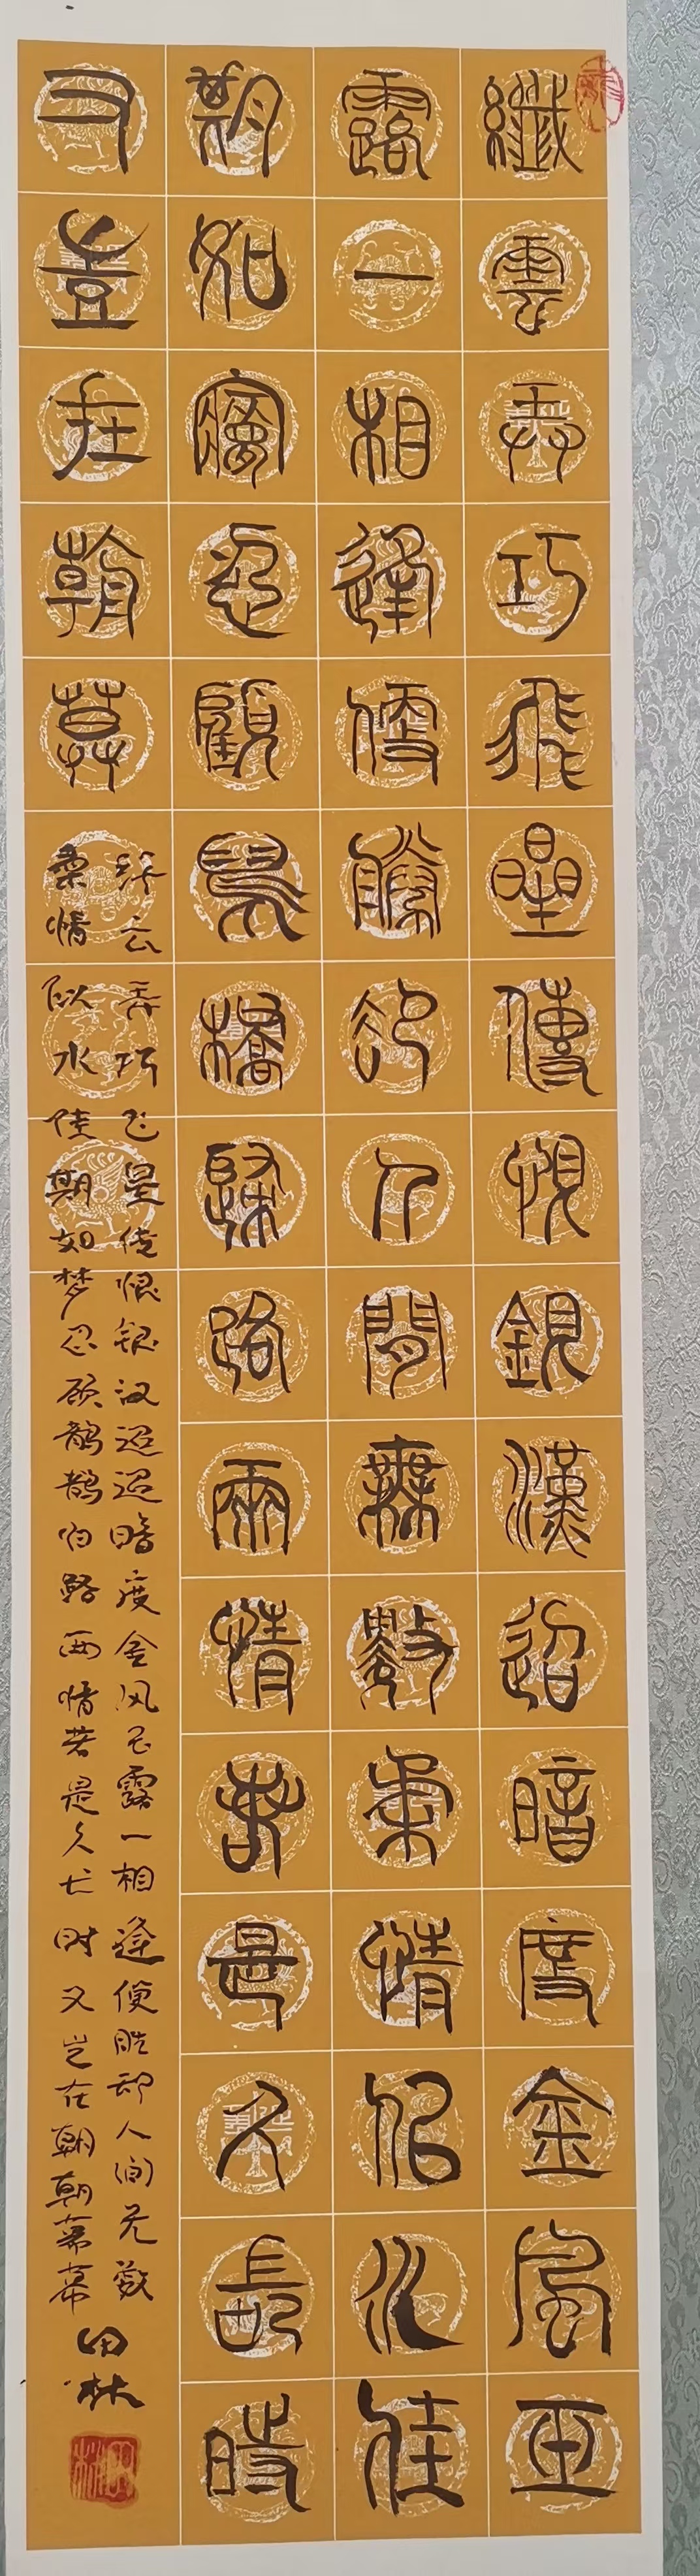 纖雲弄巧飛星傳恨銀漢迢暗度金風玉
露一相逢便勝卻人間無數柔情似水佳
期如夢忍顧鵲橋歸路兩情若是久長時
又豈在朝暮
纤云弄巧飞星传恨银汉迢迢暗度金风玉露一相逢便胜却人间无数
柔情似水佳期如梦忍顾鹊鹊归路两情若是久长时又岂在朝朝暮暮
田林